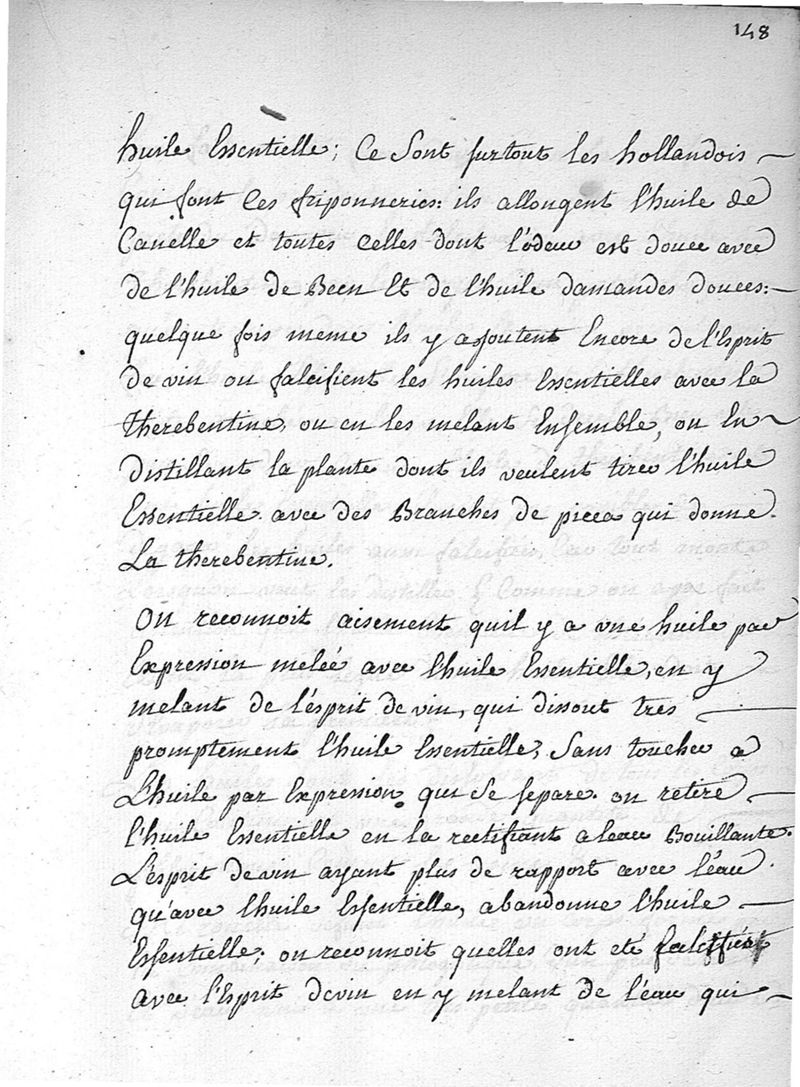 148
huile Essentielle; Ce Sont surtout les hollandois
qui font Ces friponneries: ils allongent l'huile de
Canelle et toutes Celles dont l'odeur est douce avec
de l'huile de Been Et de l'huile damandes douces:
quelque fois meme ils y ajoutent Encore de l'Esprit
de vin ou falcifient les huiles Essentielles avec la
therebentine, ou en les melant Ensemble, ou En
distillant la plante dont ils veulent tirer l'huile
Essentielle avec des Branches de picea qui donne
La therebentine.
On reconnoit aisement quil y a une huile par
Expression melée avec l'huile Essentielle, en y
melant de l'ésprit de vin, qui dissout tres
promptement l'huile Essentielle, Sans toucher a
L'huile par Expression qui Se separe. on retire
l'huile Essentielle en la rectifiant a leau Bouillante.
L'esprit de vin ayant plus de rapport avec l'éau
qu'avec lhuile Essentielle, abandonne l'huile
Essentielle: on reconnoit quelles ont eté falcifiées
avec l'Esprit de vin en y melant de l'éau qui